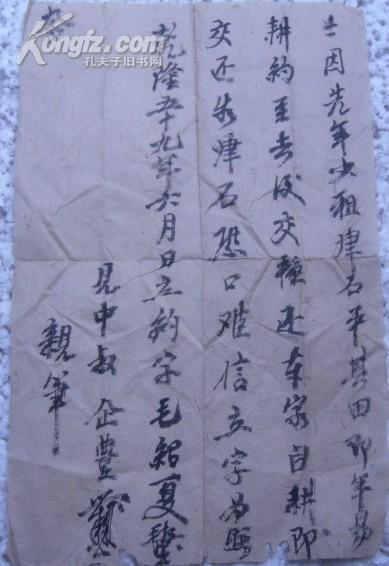 因先年少租津石平其田即年易
耕約至去後交轉还东家自耕即
交还失津石恐口难信立字为照
乾隆五十九年六月日立約字毛紹夏
見中叔 企豐
親筆
Kongfz.com
孔夫子旧书网